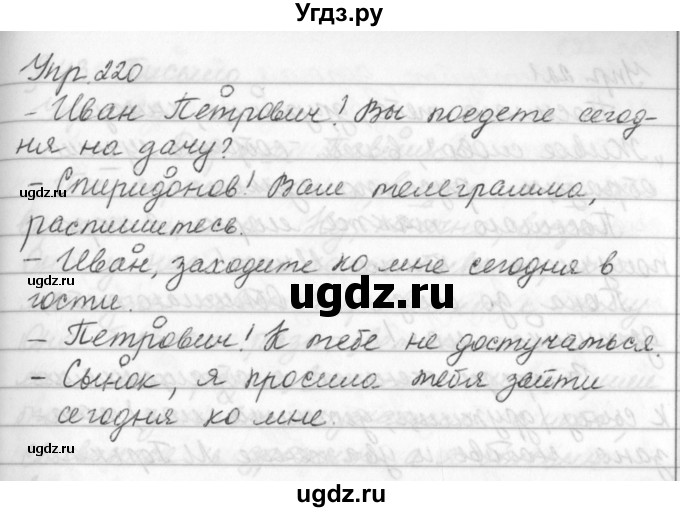 Угдз.ру
Упр. 220
- Иван Петрович! Вы поедете сегод-
ня на дачу?
- Спиридонов! Вам телеграмма,
распишитесь.
- Иван, заходите ко мне сегодня в
гости.
- Петрович! К тебе не достучаться.
- Сынок, я просила тебя зайти
сегодня ко мне.
ugdz.ru
ugdz.ru
ugdz.ru
ugdz.ru
ugdz.ru
ugdz.ru
ugdz.ru